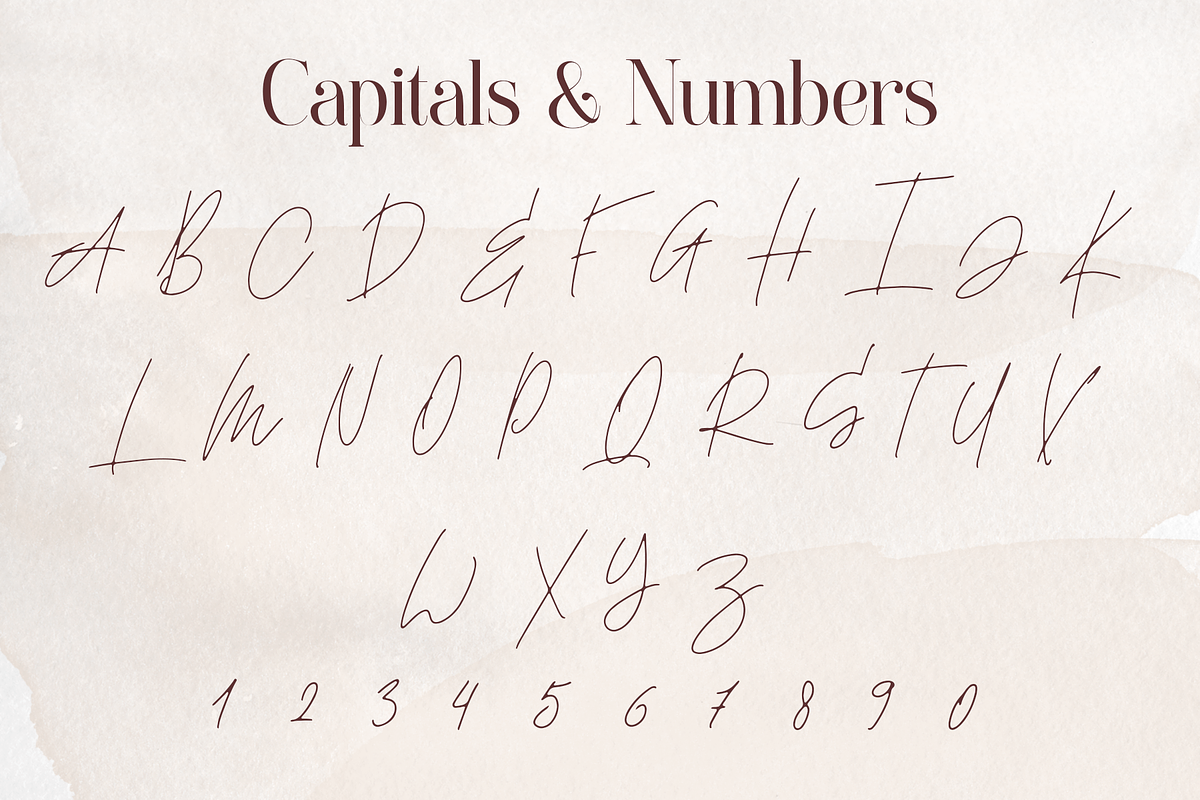 Capitals & Numbers
A B C D E F G H I J K
L M N O P Q R S T U V
W X Y Z
1 2 3 4 5 6 7 8 9 0